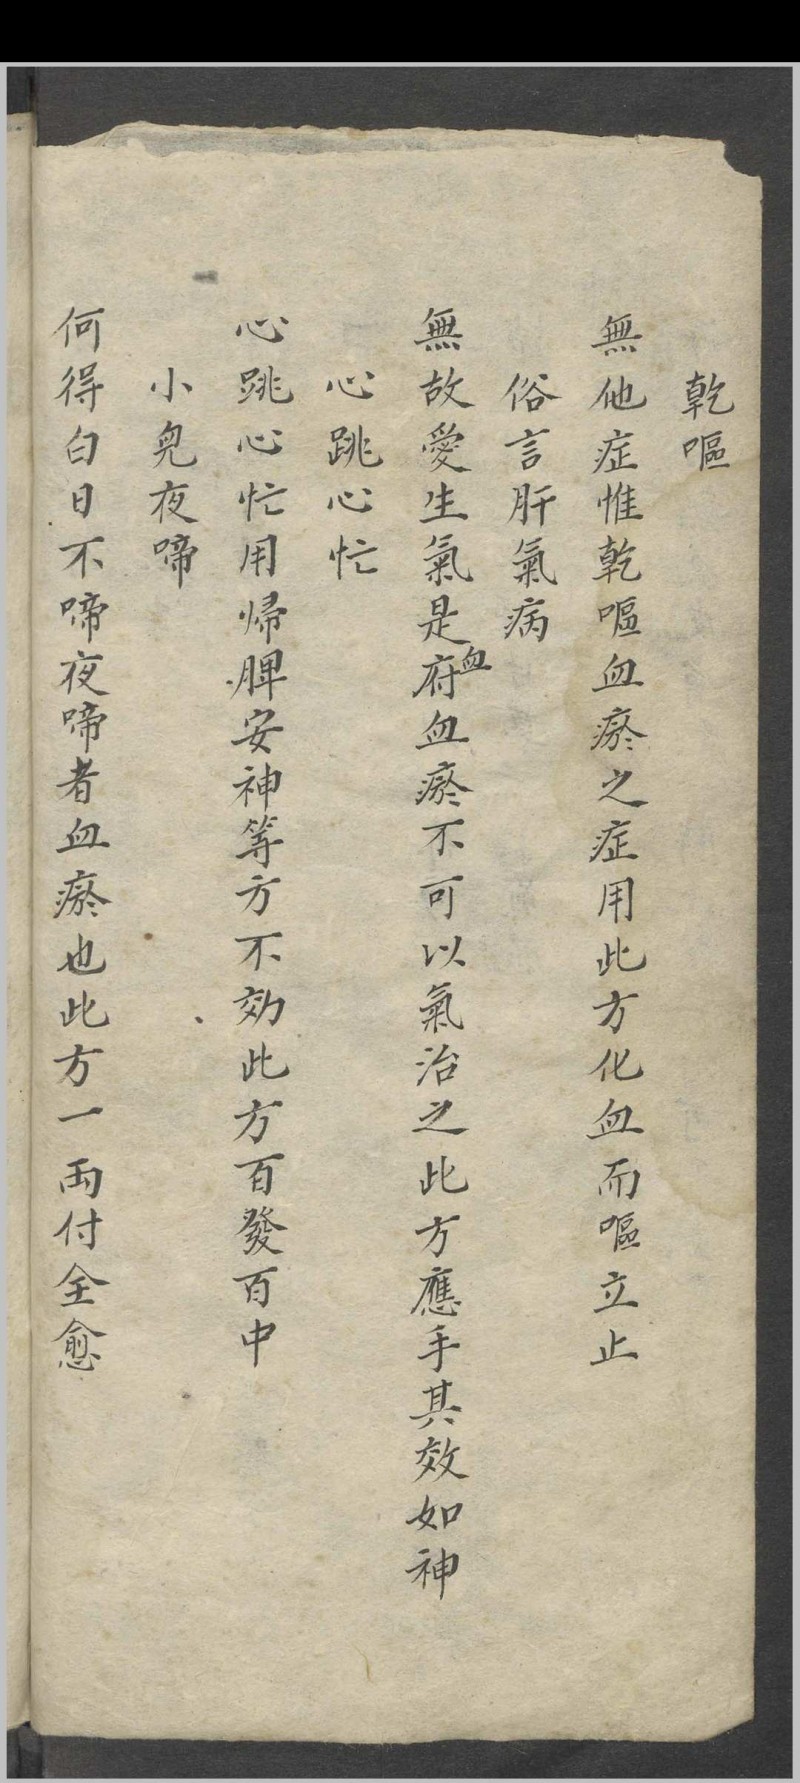 乾嘔
無他症惟乾嘔血瘀之症用此方化血而嘔立止
俗言肝氣病
無故愛生氣是血府血瘀不可以氣治之此方應手其效如神
心跳心忙
心跳心忙用帰脾安神等方不効此方百發百中
小兒夜啼
何得白日不啼夜啼者血瘀也此方一兩付全愈